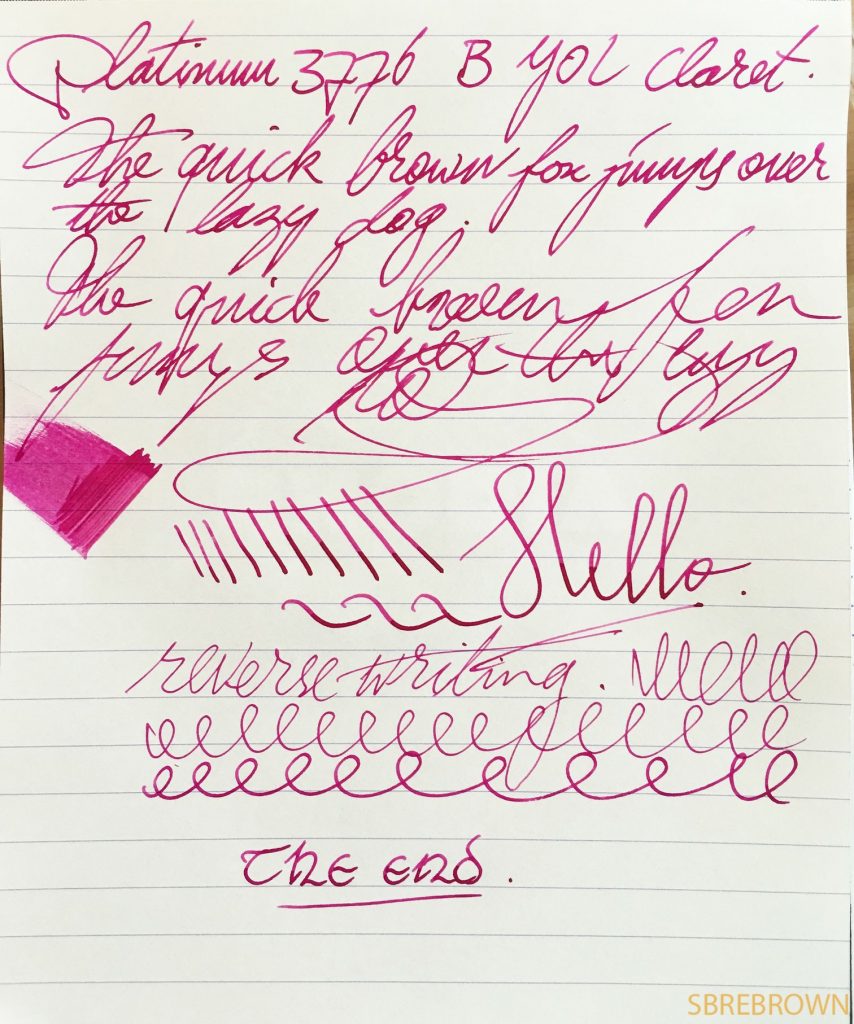 Platinum 3776 B YOL Claret.
The quick brown fox jumps over
the lazy dog.
The quick brown fox
jumps over the lazy
Hello.
reverse writing.
The end.
SBREBROWN